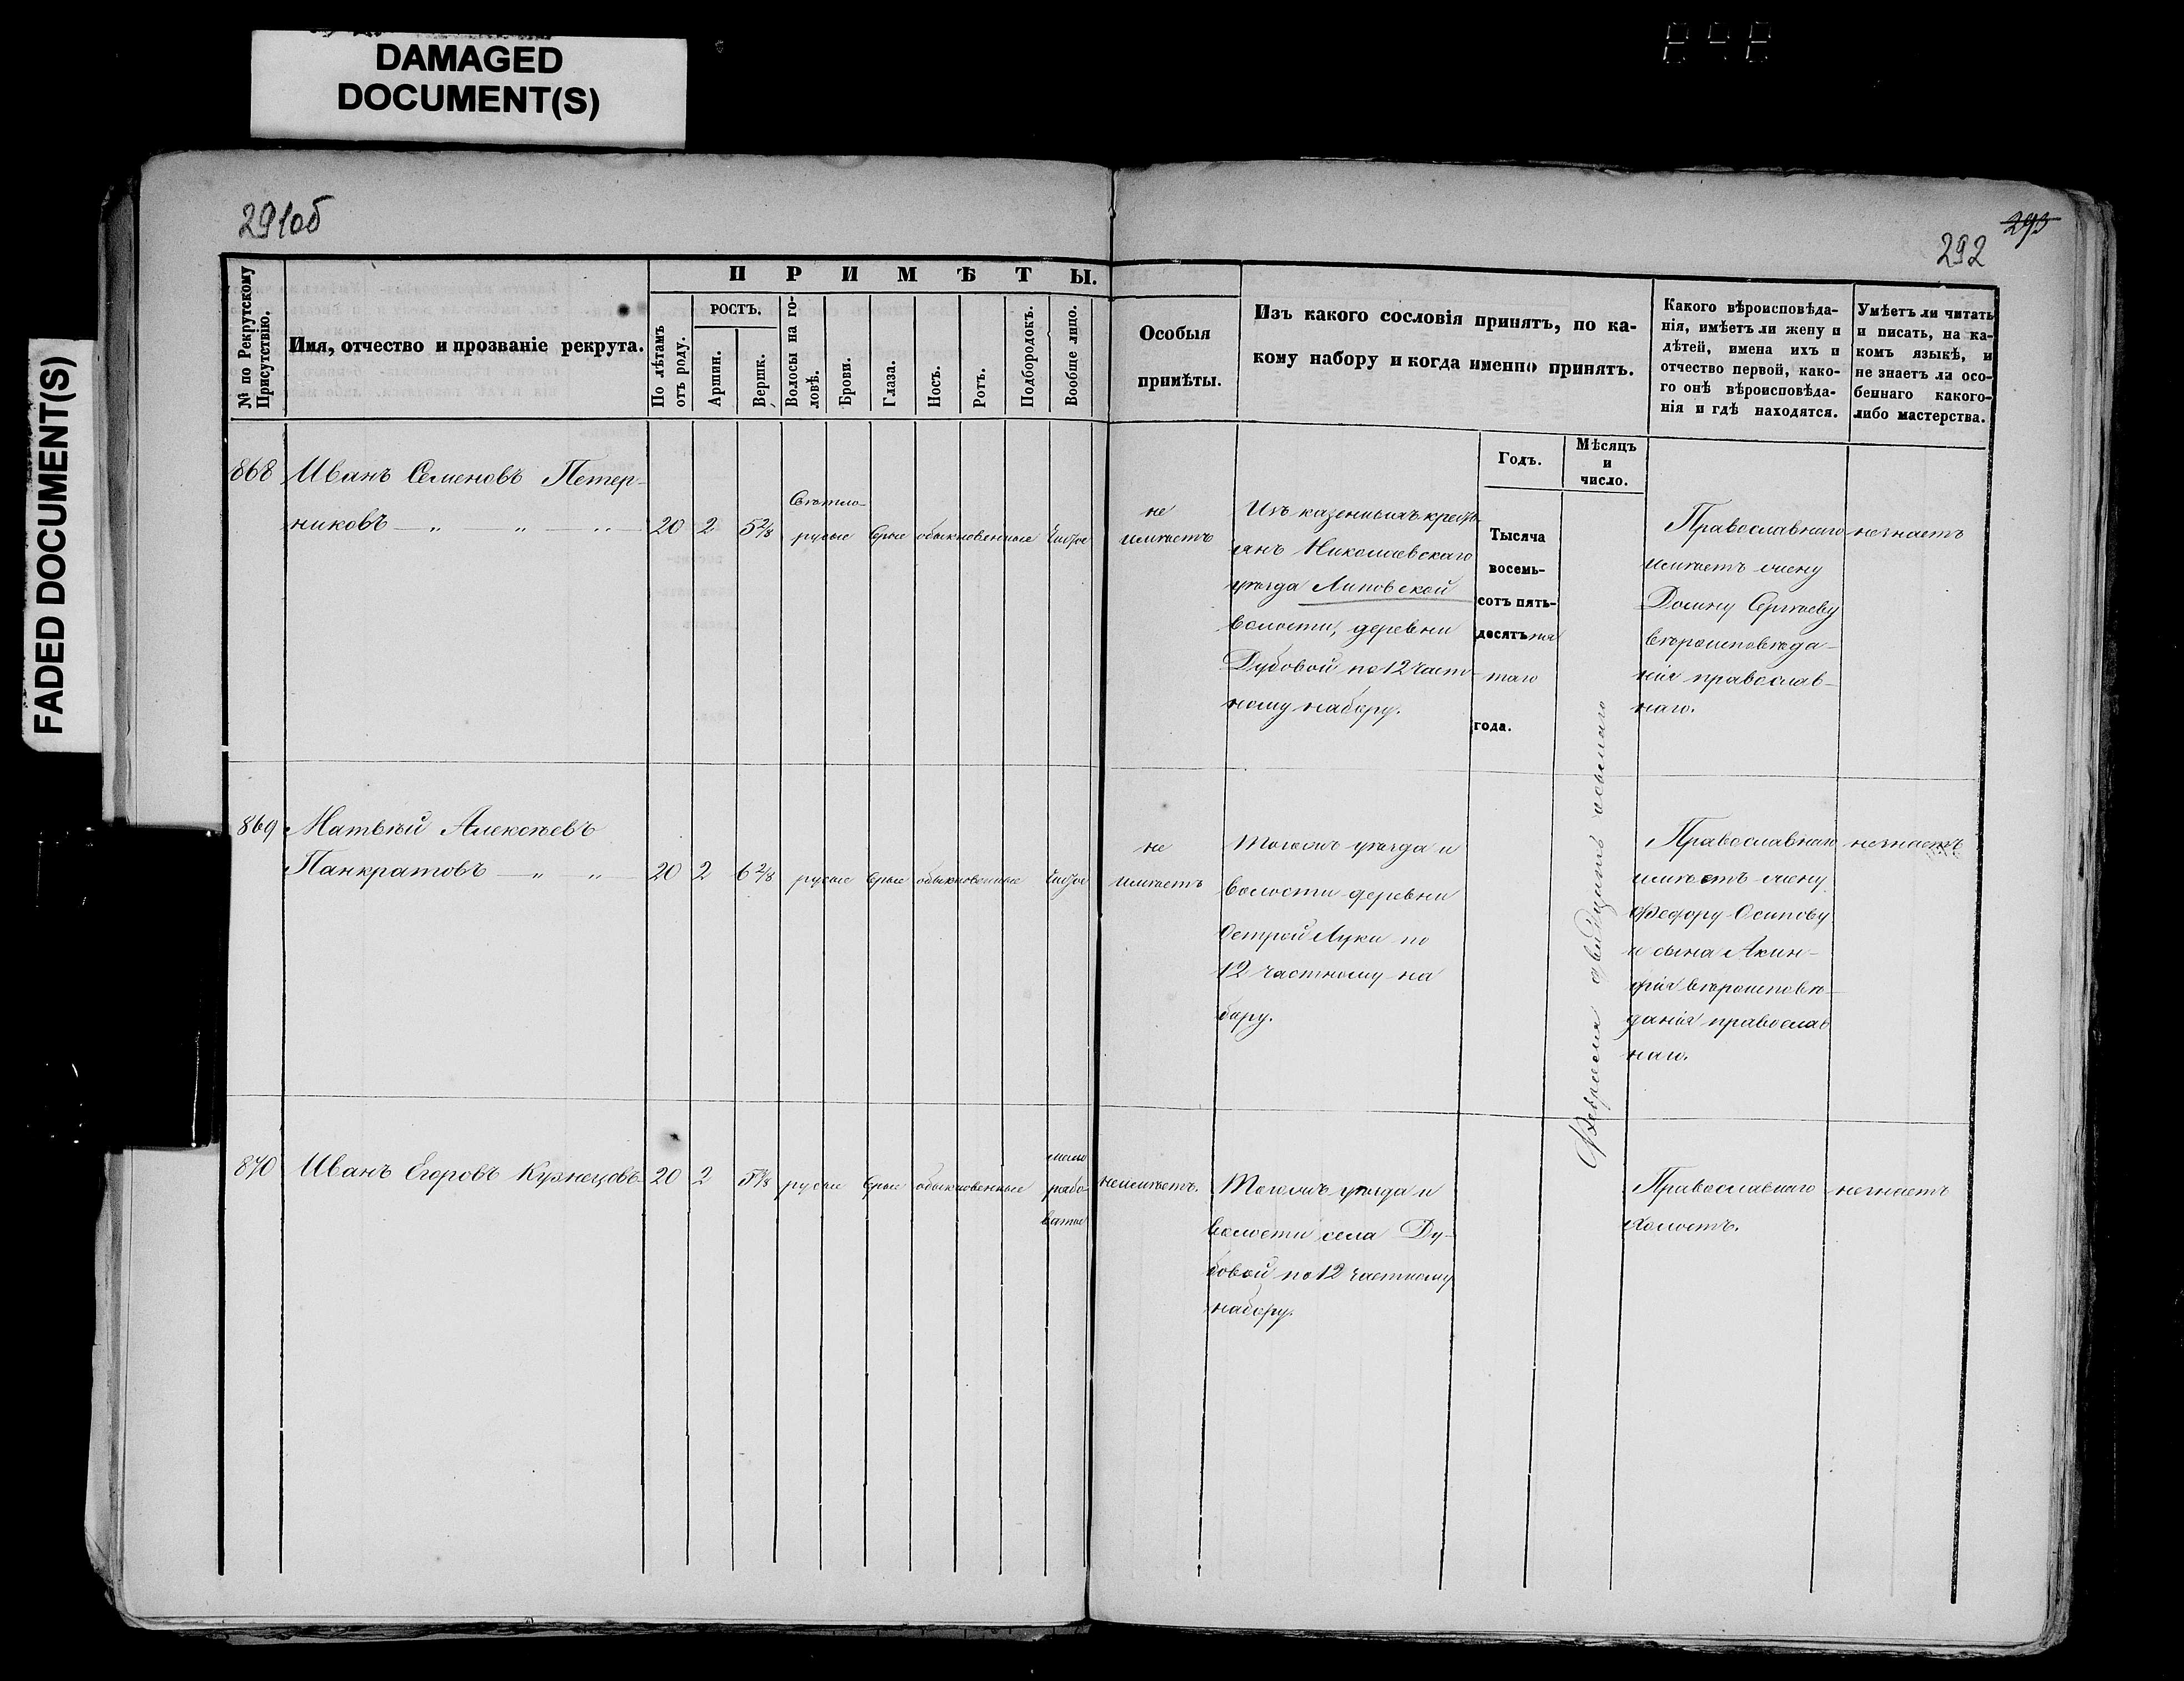 DAMAGED
DOCUMENT(S)
FADED DOCUMENT(S)
291об
293
292
№ по Рекрутскому
Присутствію.
Имя, отчество и прозваніе рекрута.
ПРИМѢТЫ.
По лѣтамъ
отъ роду.
РОСТЪ.
Аршин.
Вершк.
Волосы на го-
ловѣ.
Брови.
Глаза.
Носъ.
Ротъ.
Подбородокъ.
Вообще лицо.
Особыя
примѣты.
Изъ какого сословія принятъ, по ка-
кому набору и когда именно принятъ.
Годъ.
Мѣсяцъ
и
число.
Какого вѣроисповѣда-
нія, имѣетъ ли жену и
дѣтей, имена ихъ и
отчество первой, како-
го онѣ вѣроисповѣда-
нія и гдѣ находятся.
Умѣетъ ли читать
и писать, на ка-
комъ языкѣ, и
не знаетъ ли осо-
беннаго какого-
либо мастерства.
868 Иванъ Семеновъ Петер-
никовъ — „ „ — „ —
20 2 5 2/8
Свѣтло-
русые
сѣрые
обыкновенные
чистое
не
имѣетъ
Изъ казенныхъ кресть-
янъ Николаевскаго
уѣзда Липовской
волости, деревни
Дубовой по 12 част-
ному набору.
Тысяча
восемь-
сотъ пять-
десятъ пя
таго
года.
Февраля двадцать осьмаго
Православнаго
имѣетъ жену
Домну Сергѣеву
вѣроисповѣда-
нія православ-
наго.
незнаетъ
869 Матвѣй Алексѣевъ
Панкратовъ — „ — „ —
20 2 6 2/8
русые
сѣрые
обыкновенные
чистое
не
имѣетъ
Тогожъ уѣзда и
волости деревни
Острой Луки по
12 частному на
бору.
Православнаго
имѣетъ жену
Федору Осипову
и сына Акин-
фія вѣроисповѣ-
данія православ
наго.
незнаетъ
870 Иванъ Егоровъ Кузнецовъ
20 2
русые
сѣрые
обыкновенные
мало
рябо
ватое
неимѣетъ.
Тогожъ уѣзда и
волости села Ду-
бовой по 12 частному
набору.
Православнаго
холостъ.
незнаетъ